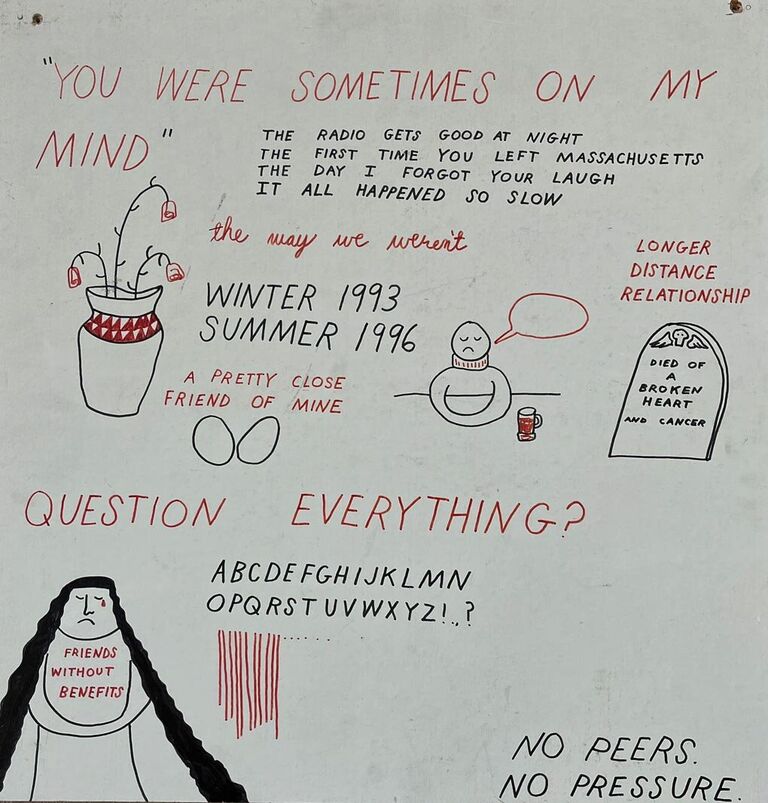 "YOU WERE SOMETIMES ON MY
MIND"
THE RADIO GETS GOOD AT NIGHT
THE FIRST TIME YOU LEFT MASSACHUSETTS
THE DAY I FORGOT YOUR LAUGH
IT ALL HAPPENED SO SLOW
the way we weren't
WINTER 1993
SUMMER 1996
LONGER
DISTANCE
RELATIONSHIP
DIED OF
A
BROKEN
HEART
AND CANCER
A PRETTY CLOSE
FRIEND OF MINE
QUESTION EVERYTHING?
ABCDEFGHIJKLMN
OPQRSTUVWXYZ!.,?
FRIENDS
WITHOUT
BENEFITS
NO PEERS.
NO PRESSURE.